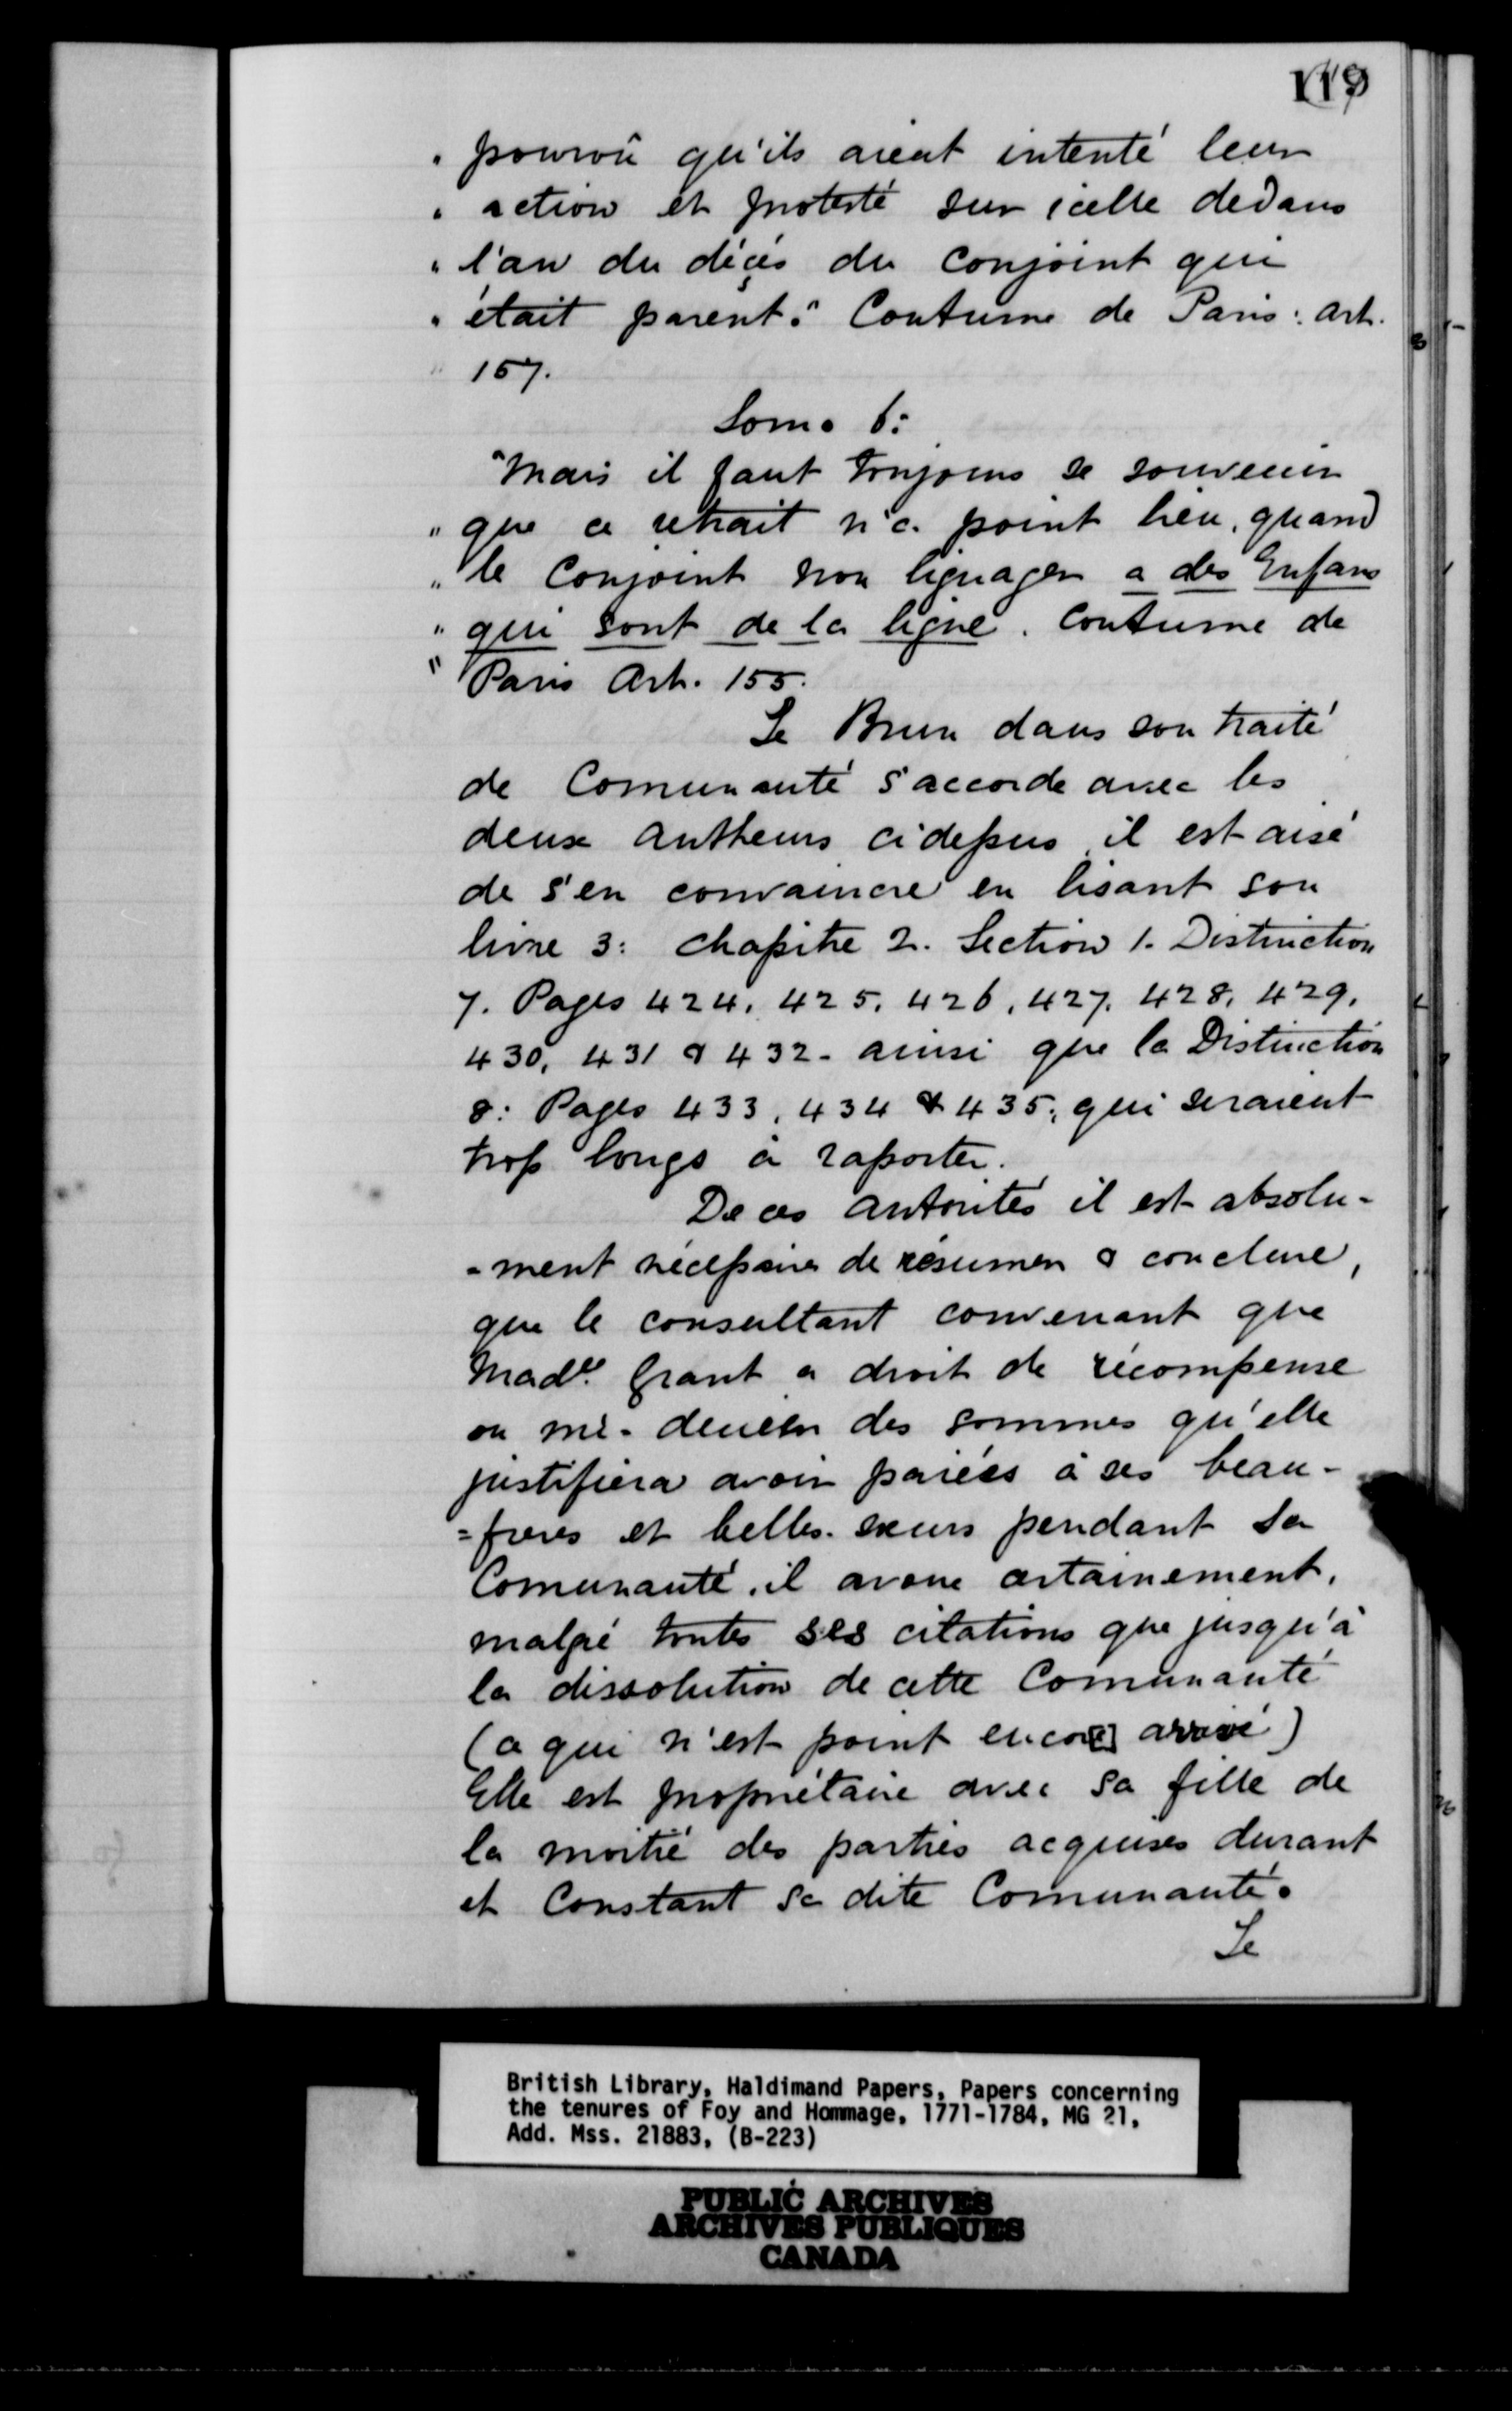 119
" pourvû qu'ils aient intenté leur
" action et protesté sur icelle dedans
" l'an du décés du conjoint qui
" était parent." Coutume de Paris: Art.
" 157.
Som. 6:
"Mais il faut toujours se souvenir
" que ce retrait n'a point lieu, quand
" le Conjoint non lignager a des Enfans
" qui sont de la ligne. Coutume de
" Paris Art. 155.
Le Brun dans son traité
de Comunauté s'accorde avec les
deux autheurs cidessus, il est aisé
de s'en convaincre en lisant son
livre 3: chapitre 2. Section 1. Distinction
7. Pages 424, 425, 426, 427, 428, 429,
430, 431 & 432- ainsi que la Distinction
8: Pages 433, 434 & 435, qui seraient
trop longs à raporter.
De ces autorités il est absolu-
-ment nécessaire de résumer & conclure,
que le consultant convenant que
Made. Grant a droit de récompense
ou mi-denier des sommes qu'elle
justifiera avoir paiées à ses beau-
=freres et belles-sœurs pendant sa
Comunauté, il avoue certainement,
malgré toutes ses citations que jusqu'à
la dissolution de cette Comunauté
(ce qui n'est point encor[e] arrivé)
Elle est propriétaire avec sa fille de
la moitié des parties acquises durant
et Constant sa dite Comunauté.
Le
British Library, Haldimand Papers, Papers concerning
the tenures of Foy and Hommage, 1771-1784, MG 21,
Add. Mss. 21883, (B-223)
PUBLIC ARCHIVES
ARCHIVES PUBLIQUES
CANADA